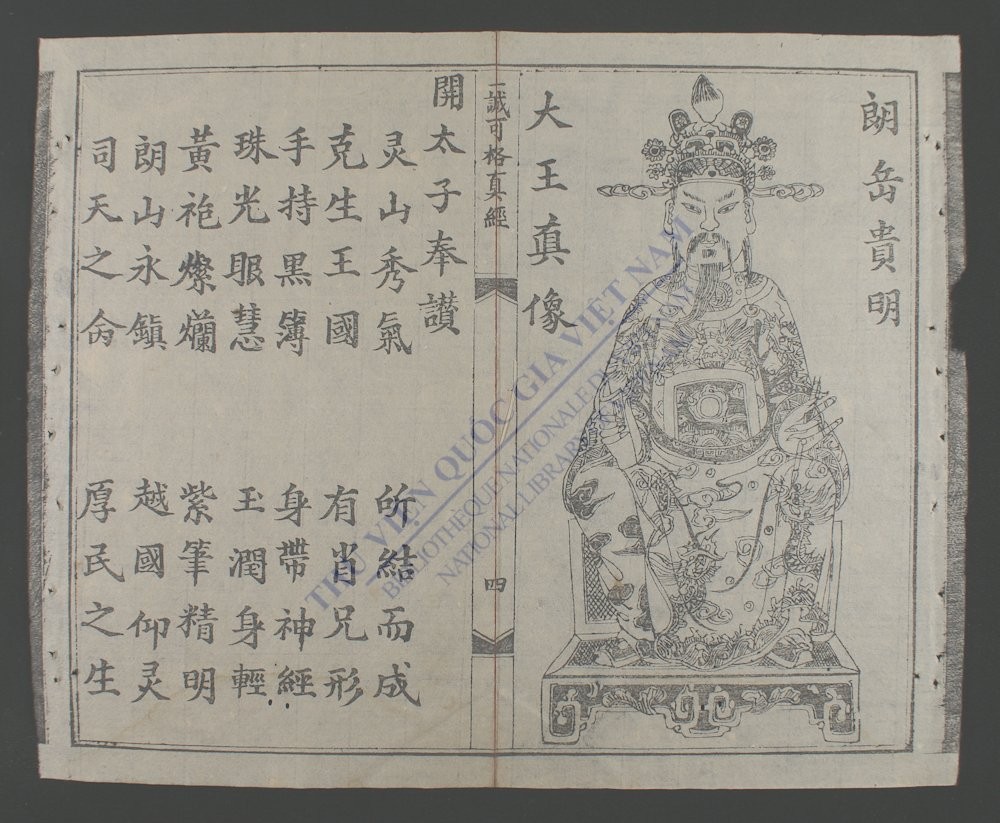 朗岳貴明
大王真像
一誠可格真經
四
開太子奉讃
灵山秀氣 所結而成
克生王國 有肖兄形
手持黑簿 身帶神經
珠光眼慧 玉潤身輕
黃袍燦爛 紫筆精明
朗山永鎮 越國仰灵
司天之命 厚民之生
THƯ VIỆN QUỐC GIA VIỆT NAM
BIBLIOTHÈQUE NATIONALE DU VIETNAM
NATIONAL LIBRARY OF VIETNAM